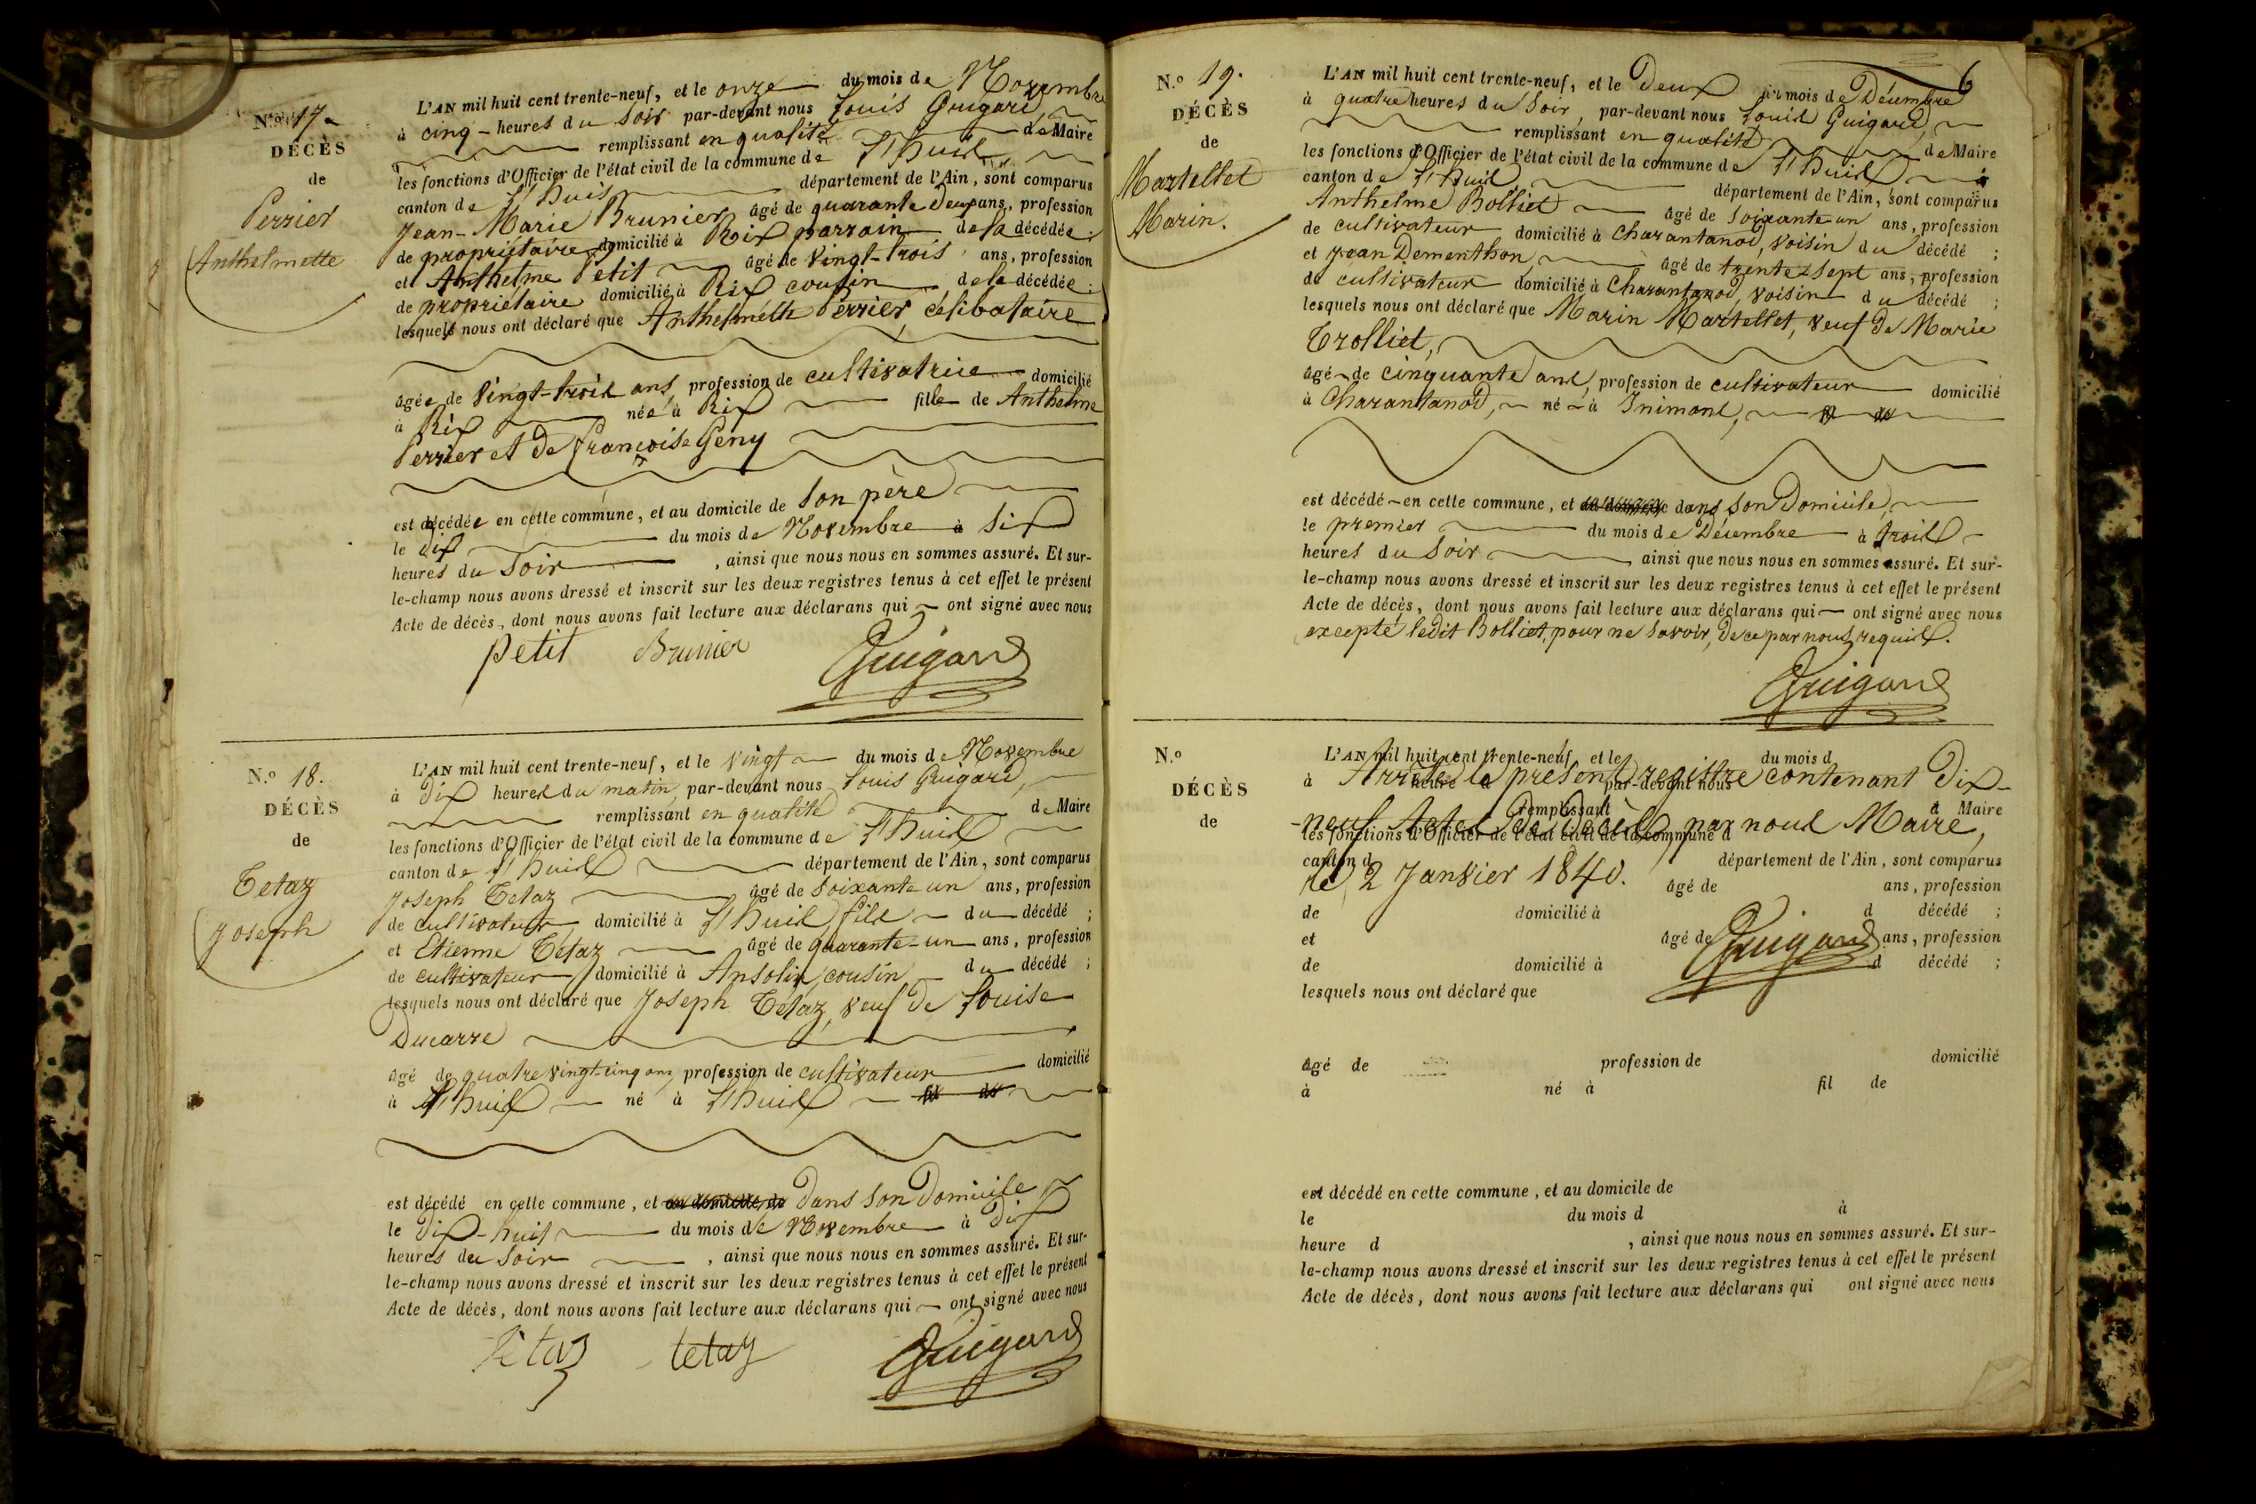 N.o 17.
DÉCÈS
de
Perrier
Anthelmette
L'AN mil huit cent trente-neuf, et le onze du mois de Novembre
à cinq heures du soir par-devant nous Louis Guigard,
remplissant en qualité de Maire
les fonctions d'Officier de l'état civil de la commune de Lhuis
canton de Lhuis département de l'Ain, sont comparus
Jean-Marie Brunier âgé de quarante Deux ans, profession
de propriétaire domicilié à Rix parrain de la décédée;
et Anthelme Petit âgé de vingt-trois ans, profession
de propriétaire domicilié à Rix cousin de la décédée;
lesquels nous ont déclaré que Anthelmette Perrier, célibataire
âgée de vingt-trois ans, profession de cultivatrice domicilié
à Rix née à Rix fille de Anthelme
Perrier et De Françoise Geny
est décédée en cette commune, et au domicile de son père
le Dix du mois de Novembre à Six
heures du Soir, ainsi que nous nous en sommes assuré. Et sur-
le-champ nous avons dressé et inscrit sur les deux registres tenus à cet effet le présent
Acte de décès, dont nous avons fait lecture aux déclarans qui ont signé avec nous
petit Brunier Guigard
N.o 18.
DÉCÈS
de
Tetaz
Joseph
L'AN mil huit cent trente-neuf, et le vingt du mois de Novembre
à Dix heures du matin, par-devant nous Louis Guigard,
remplissant en qualité de Maire
les fonctions d'Officier de l'état civil de la commune de Lhuis
canton de Lhuis département de l'Ain, sont comparus
Joseph Tetaz âgé de soixante un ans, profession
de cultivateur domicilié à Lhuis fils du décédé;
et Etienne Tetaz âgé de quarante-un ans, profession
de cultivateur domicilié à Ansolin cousin du décédé;
lesquels nous ont déclaré que Joseph Tetaz, veuf De Louise
Ducarre
âgé de quatre vingt-cinq ans, profession de cultivateur domicilié
à Lhuis né à Lhuis fil de
est décédé en cette commune, et au domicile de Dans son Domicile
le Dix-huit du mois de Novembre à Dix
heures du Soir, ainsi que nous nous en sommes assuré. Et sur-
le-champ nous avons dressé et inscrit sur les deux registres tenus à cet effet le présent
Acte de décès, dont nous avons fait lecture aux déclarans qui ont signé avec nous
Tetaz tetaz Guigard
6
N.o 19.
DÉCÈS
de
Martellet
Marin.
L'AN mil huit cent trente-neuf, et le Deux du mois de Décembre
à quatre heures du Soir, par-devant nous Louis Guigard,
remplissant en qualité de Maire
les fonctions d'Officier de l'état civil de la commune de Lhuis
canton de Lhuis département de l'Ain, sont comparus
Anthelme Bolliet âgé de soixante-un ans, profession
de cultivateur domicilié à Charantanod, voisin du décédé;
et Jean Dementhon, âgé de trente-sept ans, profession
de cultivateur domicilié à Charantanod, voisin du décédé;
lesquels nous ont déclaré que Marin Martellet, veuf De Marie
Trolliet,
âgé de cinquante ans, profession de cultivateur domicilié
à Charantanod, né à Inimont, fil de
est décédé en cette commune, et au domicile dans son Domicile,
le premier du mois de Décembre à trois
heures du Soir ainsi que nous nous en sommes assuré. Et sur-
le-champ nous avons dressé et inscrit sur les deux registres tenus à cet effet le présent
Acte de décès, dont nous avons fait lecture aux déclarans qui ont signé avec nous
excepté ledit Bolliet, pour ne savoir, De ce par nous requis.
Guigard
N.o
DÉCÈS
de
L'AN mil huit cent trente-neuf, et le du mois d
Arrêté le présent registre contenant Dix-
à heure d par-devant nous
remplissant d Maire
neuf Actes De Décès, par nous Maire,
les fonctions d'Officier de l'état civil de la commune d
canton d département de l'Ain, sont comparus
le 2 Janvier 1840.
âgé de ans, profession
de domicilié à d décédé;
et âgé de ans, profession
Guigard
de domicilié à d décédé;
lesquels nous ont déclaré que
âgé de profession de domicilié
à né à fil de
est décédé en cette commune, et au domicile de
le du mois d à
heure d, ainsi que nous nous en sommes assuré. Et sur-
le-champ nous avons dressé et inscrit sur les deux registres tenus à cet effet le présent
Acte de décès, dont nous avons fait lecture aux déclarans qui ont signé avec nous